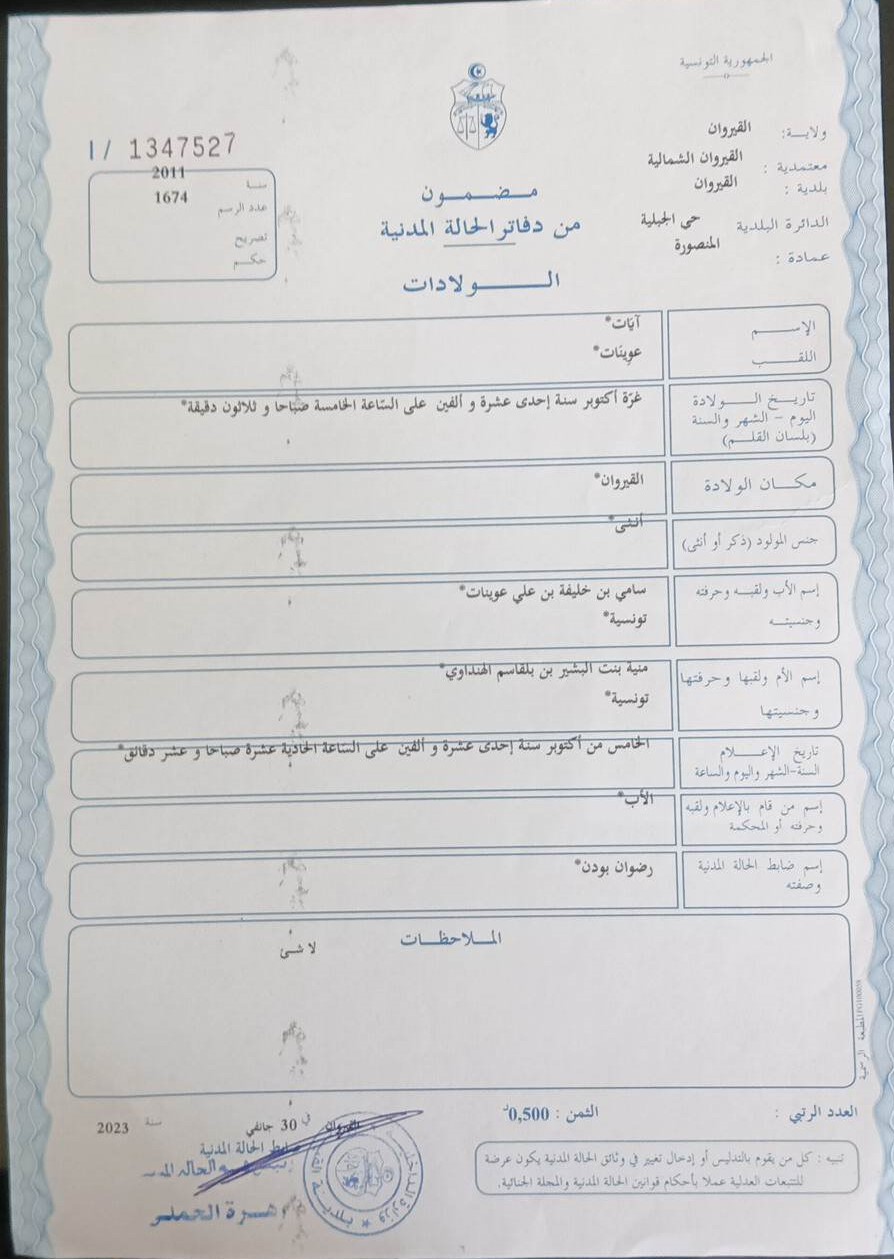 الجمهورية التونسية
ولايـــة: القيروان
معتمدية : القيروان الشمالية
بلدية : القيروان
الدائرة البلدية حي الجبلية
المنصورة
عمادة :
I / 1347527
سنة 2011
عدد الرسم 1674
تصريح
حكـم
مـضـمـــون
من دفاتر الحالة المدنية
الـــــولادات
الإســـم آيات*
اللقـــب عوينات*
تاريـــخ الـــولادة
اليوم - الشهر والسنة
(بلسان القلـــم)
غرّة أكتوبر سنة إحدى عشرة و ألفين على السّاعة الخامسة صباحا و ثلاثون دقيقة*
مكـــان الولادة القيروان*
جنس المولود (ذكر أو أنثى) أنثى*
إسم الأب ولقبـــه وحرفته سامي بن خليفة بن علي عوينات*
وجنسيتـــه تونسية*
إسم الأم ولقبها وحرفتها منية بنت البشير بن بلقاسم الهنداوي*
وجنسيتها تونسية*
تاريخ الإعـــلام
السنة-الشهر واليوم والساعة
الخامس من أكتوبر سنة إحدى عشرة و ألفين على الساعة الحادية عشرة صباحا و عشر دقائق*
إسم من قام بالإعلام ولقبه الأب*
وحرفته أو المحكمة
إسم ضابط الحالة المدنية رضوان بودن*
وصفته
المـــلاحظـــات
لا شئ
المطبعة الرسمية
العدد الرتبي :
الثمن : 0,500د
القيروان في 30 جانفي سنة 2023
ضابط الحالة المدنية
تنبيه : كل من يقوم بالتدليس أو إدخال تغيير في وثائق الحالة المدنية يكون عرضة
للتتبعات العدلية عملا بأحكام قوانين الحالة المدنية والمجلة الجنائية.